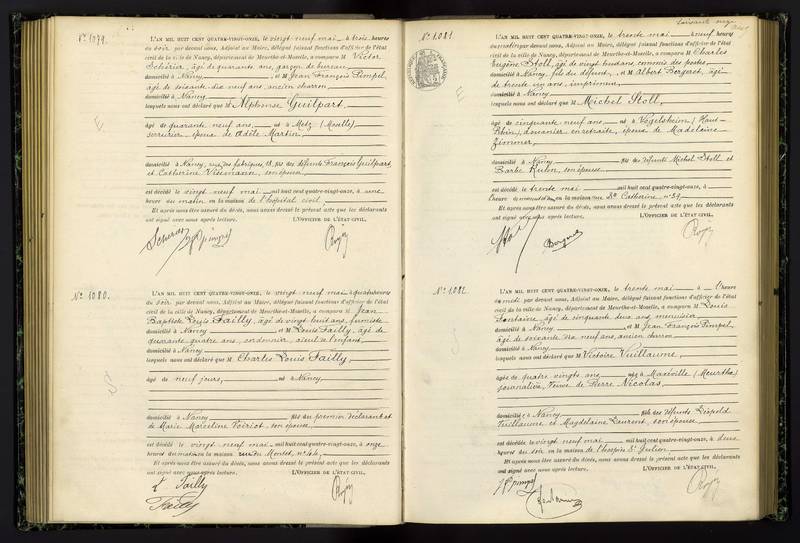 N° 1079.
L'AN MIL HUIT CENT QUATRE-VINGT-ONZE, le vingt neuf mai à trois heures
du soir par devant nous, Adjoint au Maire, délégué faisant fonctions d'officier de l'état
civil de la ville de Nancy, département de Meurthe-et-Moselle, a comparu M Victor
Schérier, âgé de quarante ans, garçon de bureau,
domicilié à Nancy et M Jean François Pimpel,
âgé de soixante dix neuf ans, ancien charron,
domicilié à Nancy
lesquels nous ont déclaré que M Alphonse Guilpart,
âgé de quarante neuf ans, né à Metz (Moselle)
serrurier, époux de Adèle Martin,
domicilié à Nancy, rue des fabriques, 18, fils des défunts François Guilpart
et Catherine Visemann, son épouse,
est décédé le vingt neuf mai mil huit cent quatre-vingt-onze, à une
heure du matin en la maison de l'hôpital civil,
Et après nous être assuré du décès, nous avons dressé le présent acte que les déclarants
ont signé avec nous après lecture. L'OFFICIER DE L'ÉTAT CIVIL,
N° 1080.
L'AN MIL HUIT CENT QUATRE-VINGT-ONZE, le vingt neuf mai à quatre heures
du soir par devant nous, Adjoint au Maire, délégué faisant fonctions d'officier de l'état
civil de la ville de Nancy, département de Meurthe-et-Moselle, a comparu M Jean
Baptiste Louis Failly, âgé de vingt huit ans, fumiste,
domicilié à Nancy et M Louis Failly, âgé de
quarante quatre ans, cordonnier, aïeul de l'enfant,
domicilié à Nancy
lesquels nous ont déclaré que M Charles Louis Failly,
âgé de neuf jours, né à Nancy,
domicilié à Nancy fils du premier déclarant et
de Marie Marceline Poiriot, son épouse,
est décédé le vingt neuf mai mil huit cent quatre-vingt-onze, à onze
heures du matin en la maison rue du Montet, n° 44,
Et après nous être assuré du décès, nous avons dressé le présent acte que les déclarants
ont signé avec nous après lecture. L'OFFICIER DE L'ÉTAT CIVIL,
L Failly
Failly
N° 1.081
L'AN MIL HUIT CENT QUATRE-VINGT-ONZE, le trente mai à neuf heures
du matin par devant nous, Adjoint au Maire, délégué faisant fonctions d'officier de l'état
civil de la ville de Nancy, département de Meurthe-et-Moselle, a comparu M Charles
Eugène Stoll, âgé de vingt huit ans, commis des postes,
domicilié à Nancy, fils du défunt, et M Albert Bergeret, âgé
de trente un ans, imprimeur,
domicilié à Nancy
lesquels nous ont déclaré que M Michel Stoll,
âgé de cinquante neuf ans né à Vogelsheim (Haut-
Rhin), douanier en retraite, époux de Madelaine
Zimmer,
domicilié à Nancy fils des défunts Michel Stoll et
Barbe Kuhn, son épouse,
est décédé le trente mai mil huit cent quatre-vingt-onze, à
en la maison rue Ste Catherine, n° 39,
Et après nous être assuré du décès, nous avons dressé le présent acte que les déclarants
ont signé avec nous après lecture. L'OFFICIER DE L'ÉTAT CIVIL,
Stoll
N° 1.082.
L'AN MIL HUIT CENT QUATRE-VINGT-ONZE, le trente mai à l'heure
de midi par devant nous, Adjoint au Maire, délégué faisant fonctions d'officier de l'état
civil de la ville de Nancy, département de Meurthe-et-Moselle, a comparu M Louis
Fontaine, âgé de cinquante deux ans, menuisier,
domicilié à Nancy, et M Jean François Pimpel,
âgé de soixante dix neuf ans, ancien charron
domicilié à Nancy
lesquels nous ont déclaré que M Victoire Vuillaume,
âgée de quatre vingts ans, née à Maxéville (Meurthe)
journalière, veuve de Pierre Nicolas,
domiciliée à Nancy fille des défunts Léopold
Vuillaume et Magdelaine Laurent, son épouse,
est décédée le vingt neuf mai mil huit cent quatre-vingt-onze, à deux
heures du soir en la maison de l'hospice St Julien
Et après nous être assuré du décès, nous avons dressé le présent acte que les déclarants
ont signé avec nous après lecture. L'OFFICIER DE L'ÉTAT CIVIL,